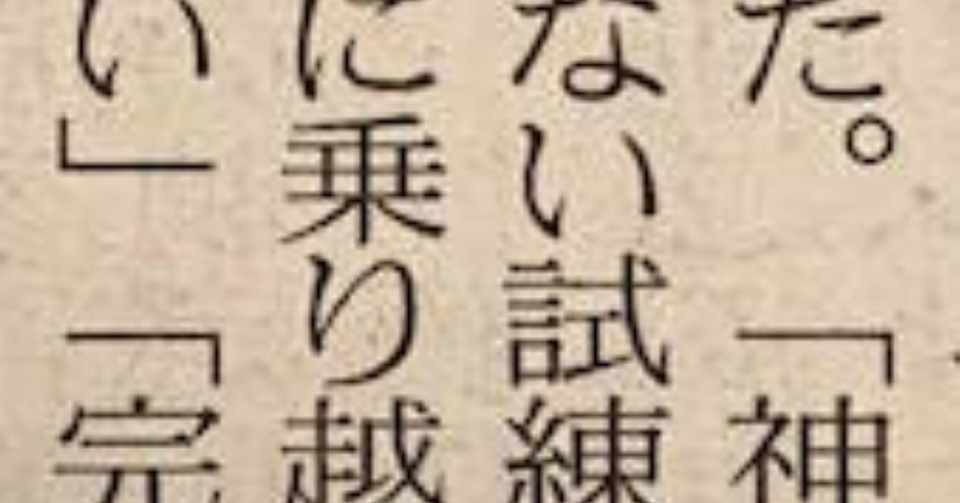 た。「神
ない試練
に乗り越
い」「完